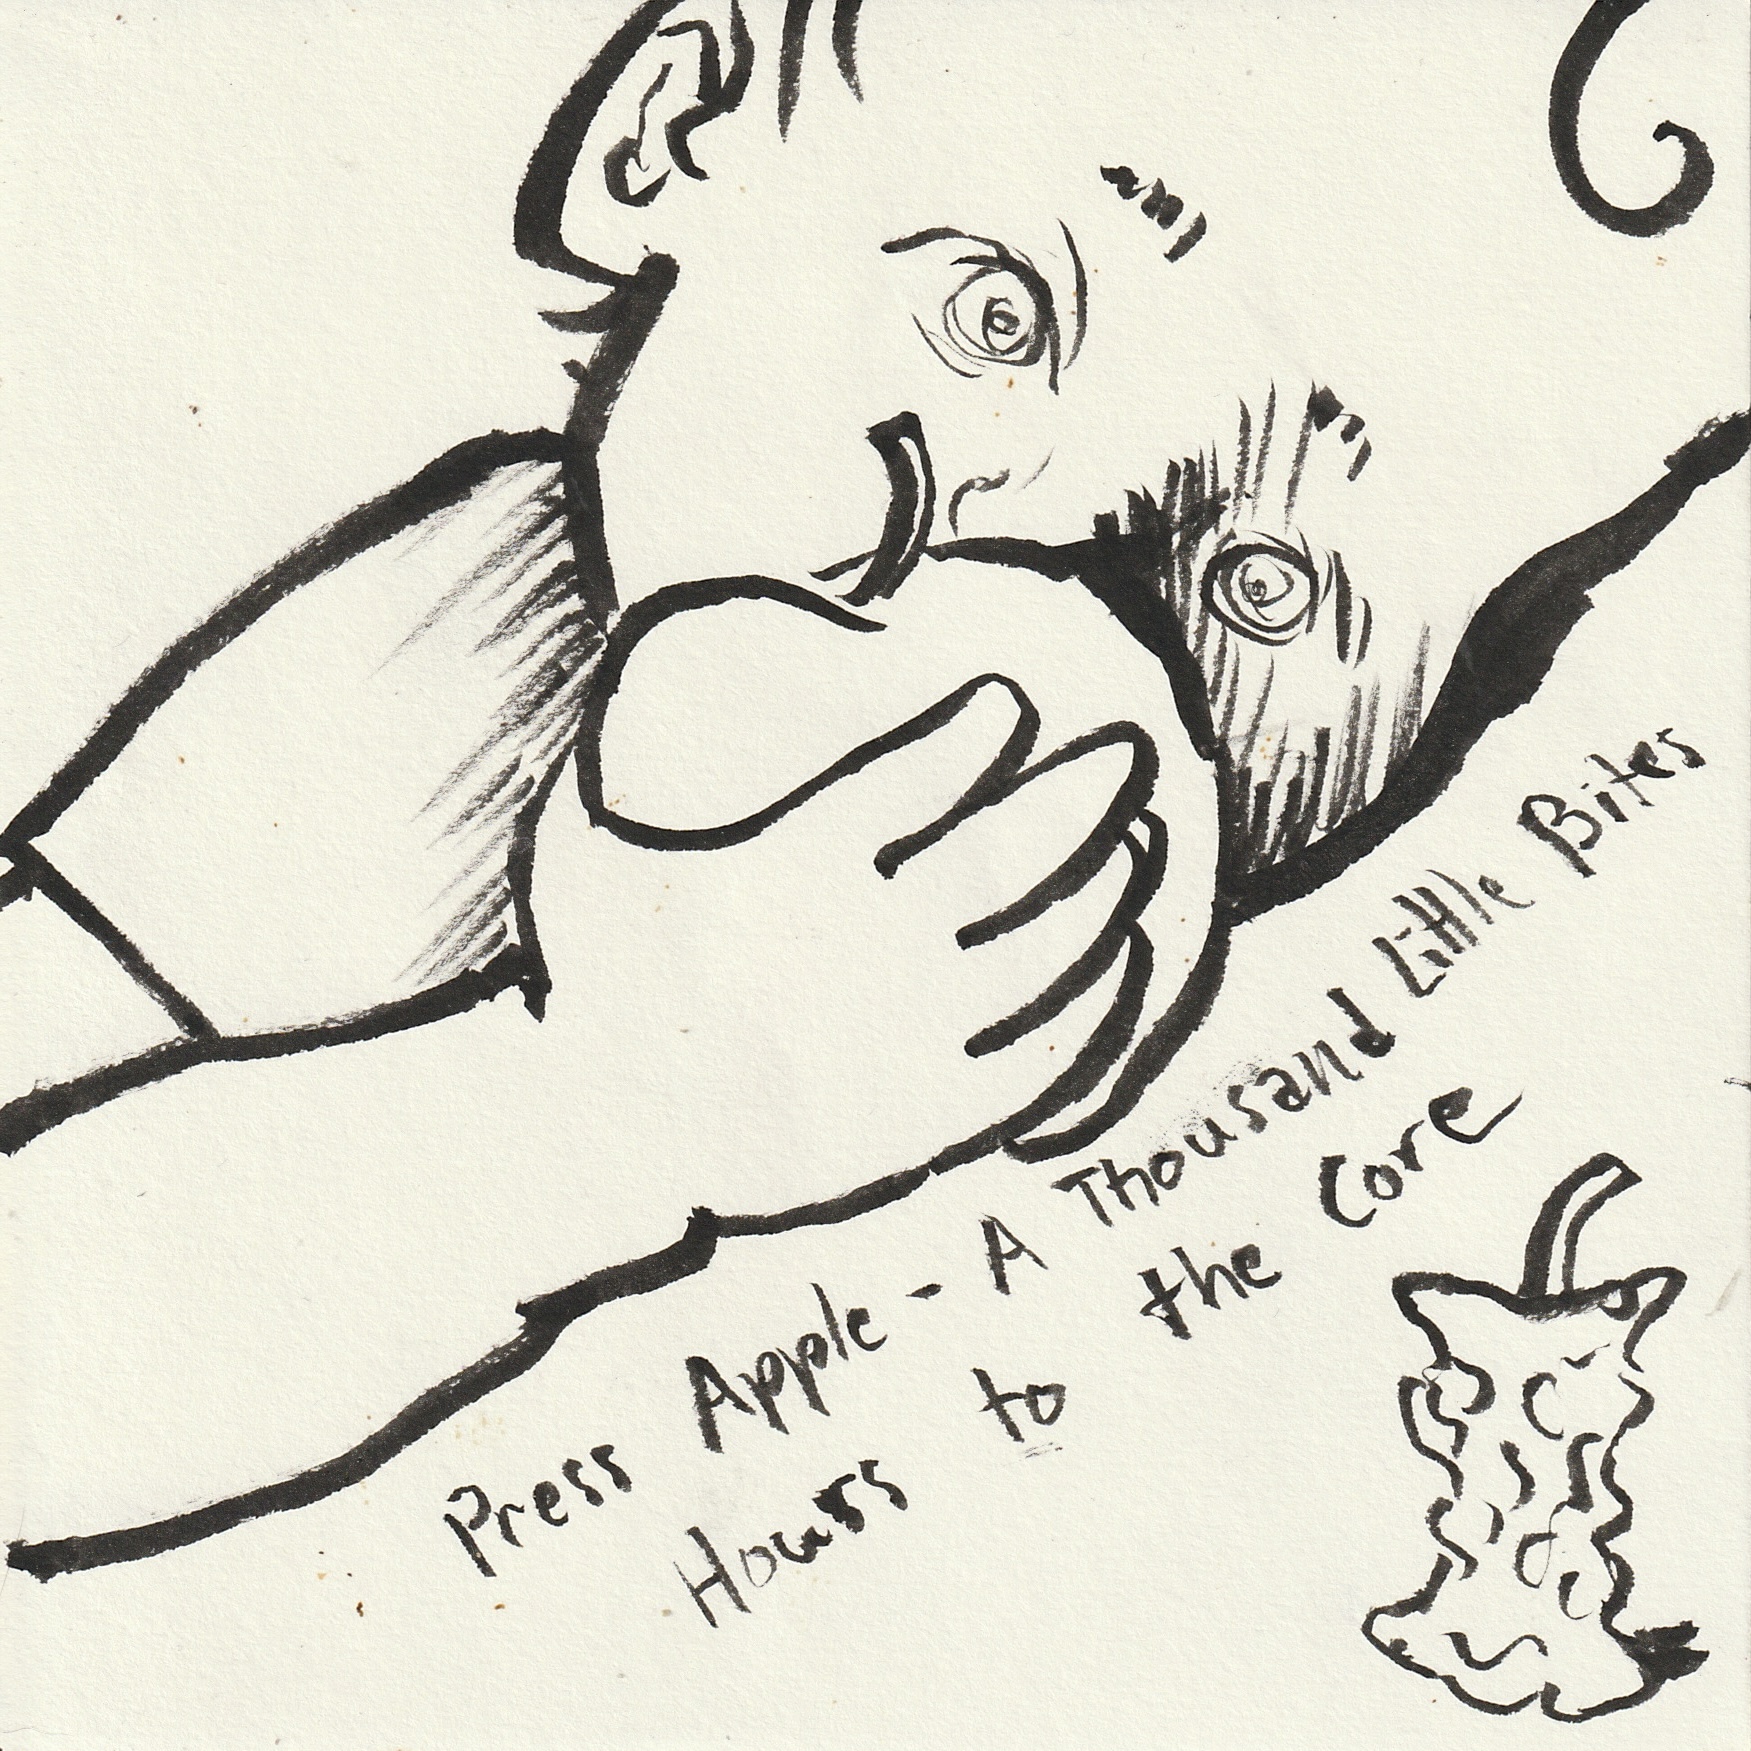 Press Apple - A Thousand Little Bites
Hours to the Core